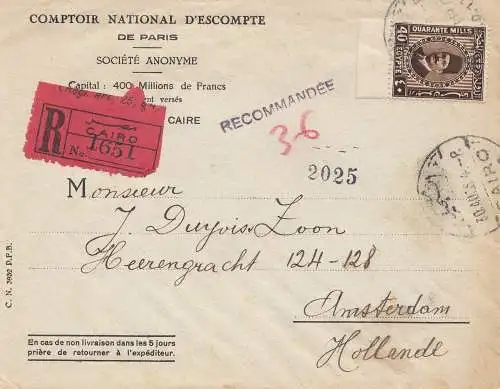 COMPTOIR NATIONAL D'ESCOMPTE
DE PARIS
SOCIÉTÉ ANONYME
Capital: 400 Millions de Francs
versés
CAIRE
R
CAIRO
No. 1651
RECOMMANDÉE
36
2025
40 QUARANTE MILLS
EGYPTE
CAIRO
Monsieur
J. Duyvis Zoon
Heerengracht 124-128
Amsterdam
Hollande
C. N. 3932 P.P.B.
En cas de non livraison dans les 5 jours
prière de retourner à l'expéditeur.